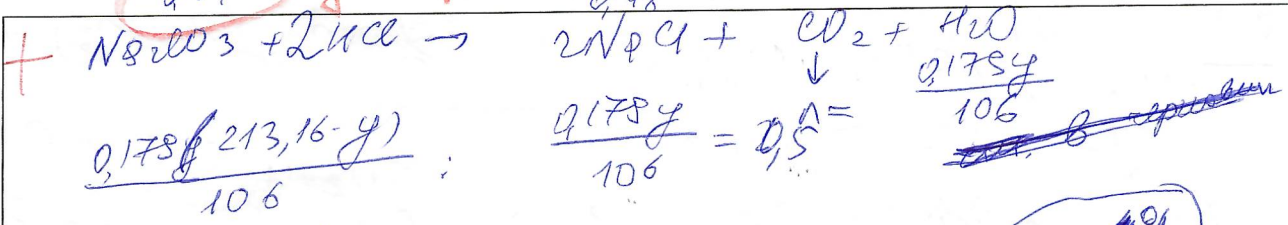 + Na2CO3 + 2HCl → 2NaCl + CO2 + H2O
↓
n =
0,179y/106
0,179(213,16-y)/106 : 0,179y/106 = 0,5
в